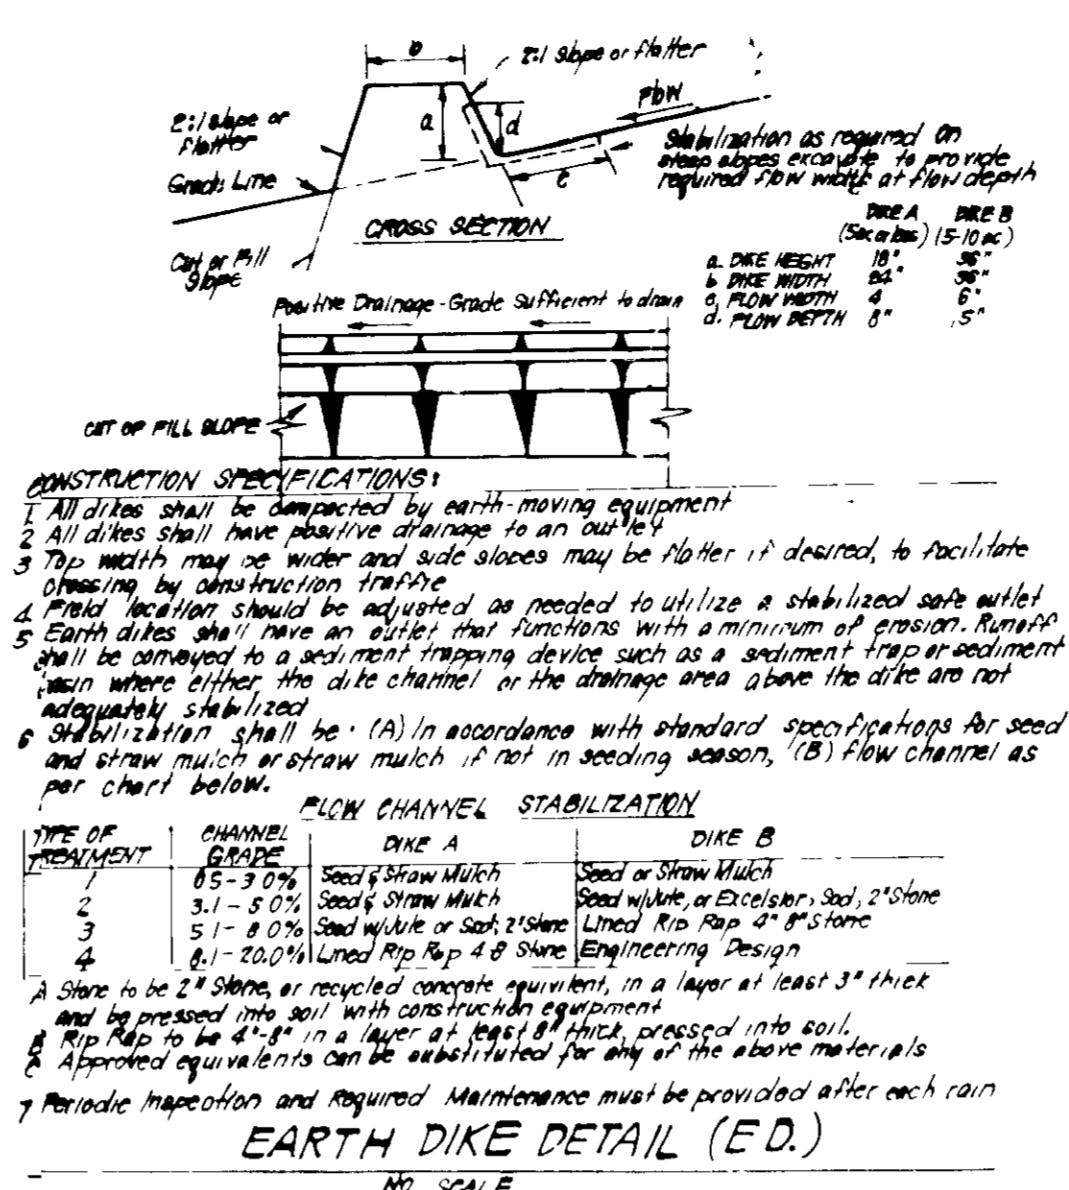 b
2:1 Slope or flatter
Flow
2:1 slope or
flatter
a
d
Stabilization as required On
steep slopes excavate to provide
required flow width at flow depth
Grade Line
c
CROSS SECTION
Cut or Fill
Slope
DIKE A DIKE B
(5ac or less) (5-10 ac)
a. DIKE HEIGHT 18" 36"
b DIKE WIDTH 24" 36"
c, FLOW WIDTH 4 6"
d. FLOW DEPTH 8" .5"
Positive Drainage - Grade Sufficient to drain
CUT OF FILL SLOPE
CONSTRUCTION SPECIFICATIONS:
1 All dikes shall be compacted by earth-moving equipment
2 All dikes shall have positive drainage to an outlet
3 Top width may be wider and side slopes may be flatter if desired, to facilitate
crossing by construction traffic
4 Field location should be adjusted as needed to utilize a stabilized safe outlet
5 Earth dikes shall have an outlet that functions with a minimum of erosion. Runoff
shall be conveyed to a sediment trapping device such as a sediment trap or sediment
basin where either the dike channel or the drainage area above the dike are not
adequately stabilized
6 Stabilization shall be · (A) In accordance with standard specifications for seed
and straw mulch or straw mulch if not in seeding season, (B) flow channel as
per chart below.
FLOW CHANNEL STABILIZATION
TYPE OF CHANNEL DIKE A DIKE B
TREATMENT GRADE
1 05-30% Seed & Straw Mulch Seed or Straw Mulch
2 3.1-50% Seed & Straw Mulch Seed w/Jute, or Excelsior, Sod, 2" Stone
3 51-80% Seed w/Jute or Sod; 2" Stone Lined Rip Rap 4" 8" Stone
4 8.1-20.0% Lined Rip Rap 4 8 Stone Engineering Design
A Stone to be 2" Stone, or recycled concrete equivilent, in a layer at least 3" thick
and be pressed into soil with construction equipment
B Rip Rap to be 4"-8" in a layer at least 8" thick, pressed into soil.
C Approved equivalents can be substituted for any of the above materials
7 Periodic Inspection and Required Maintenance must be provided after each rain
EARTH DIKE DETAIL (E D.)
NO SCALE